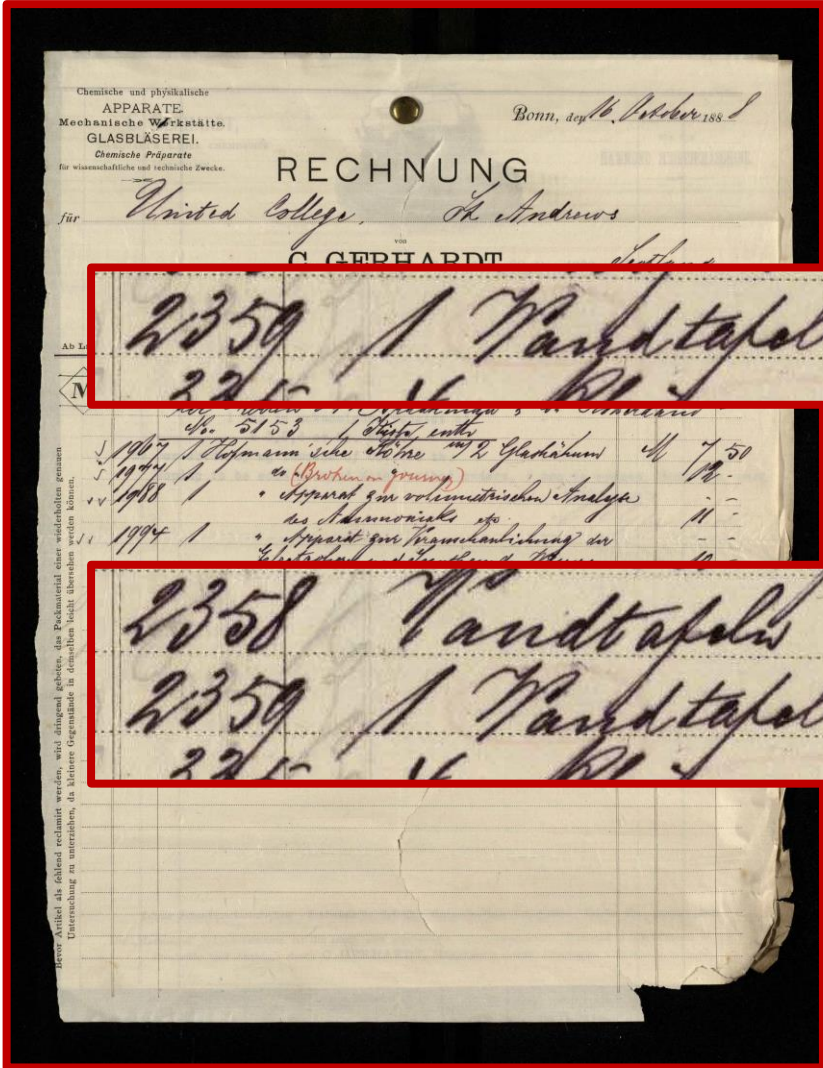 Chemische und physikalische
APPARATE.
Mechanische Werkstätte.
GLASBLÄSEREI.
Chemische Präparate
für wissenschaftliche und technische Zwecke.
Bonn, den 16. October 1888
RECHNUNG
für United College, St Andrews
von
C. GERHARDT Scotland
2359 1 Wandtafel
Ab
M
No. 5153 1 Kiste, enth
1967 1 Hofmann'sche Röhre m/2 Glashähnen M 7 50
1977 1 do (Broken on journey) 12 -
1988 1 " Apparat zur volumetrischen Analyse - -
des Ammoniaks etc. 11 -
1994 1 " Apparat zur Veranschaulichung der - -
2358 Wandtafeln
2359 1 Wandtafel
Bevor Artikel als fehlend reclamirt werden, wird dringend gebeten, das Packmaterial einer wiederholten genauen
Untersuchung zu unterziehen, da kleinere Gegenstände in demselben leicht übersehen werden können.